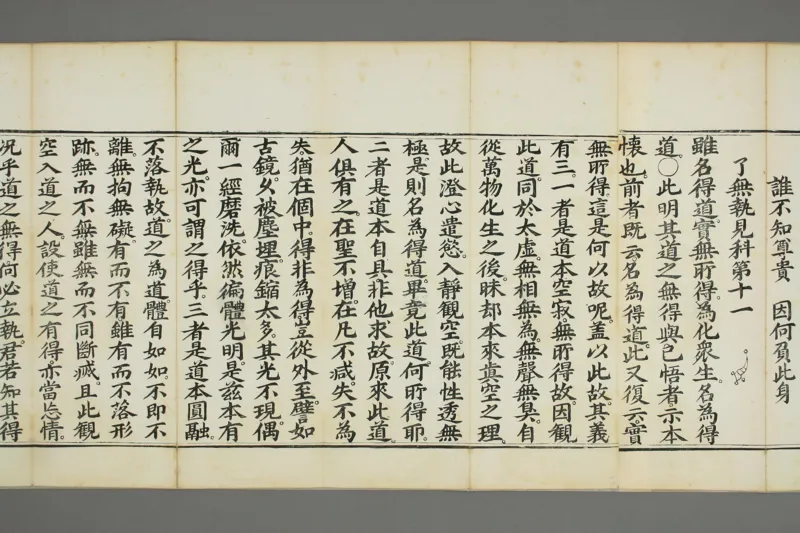 誰不知尊貴　因何負此身
了無執見科第十一
雖名得道。實無所得。為化衆生。名為得
道。〇此明其道之無得。與已悟者示本
懷也。前者既云名為得道。此又復云。實
無所得。這是何以故呢。蓋以此故。其義
有三。一者是道本空寂。無所得故。因觀
此道。同於太虛。無相無為。無聲無臭。自
從萬物化生之後。昧却本來真空之理。
故此澄心遣慾。入靜觀空。既能性透無
極。是則名為得道。畢竟此道。何所得耶。
二者是道本自具。非他求故。原來此道。
人俱有之。在聖不增。在凡不减。失不為
失。猶在個中。得非為得。豈從外至。譬如
古鏡。久被塵埋。痕鏥太多。其光不現。偶
爾一經磨洗。依然徧體光明。是兹本有
之光。亦可謂之得乎。三者是道本圓融。
不落執故。道之為道。體自如如。不即不
離。無拘無礙。有而不有。雖有而不落形
跡。無而不無。雖無而不同斷滅。且此觀
空入道之人。設使道之有得。亦當忘情。
况乎道之無得。何必立執。君若知其得